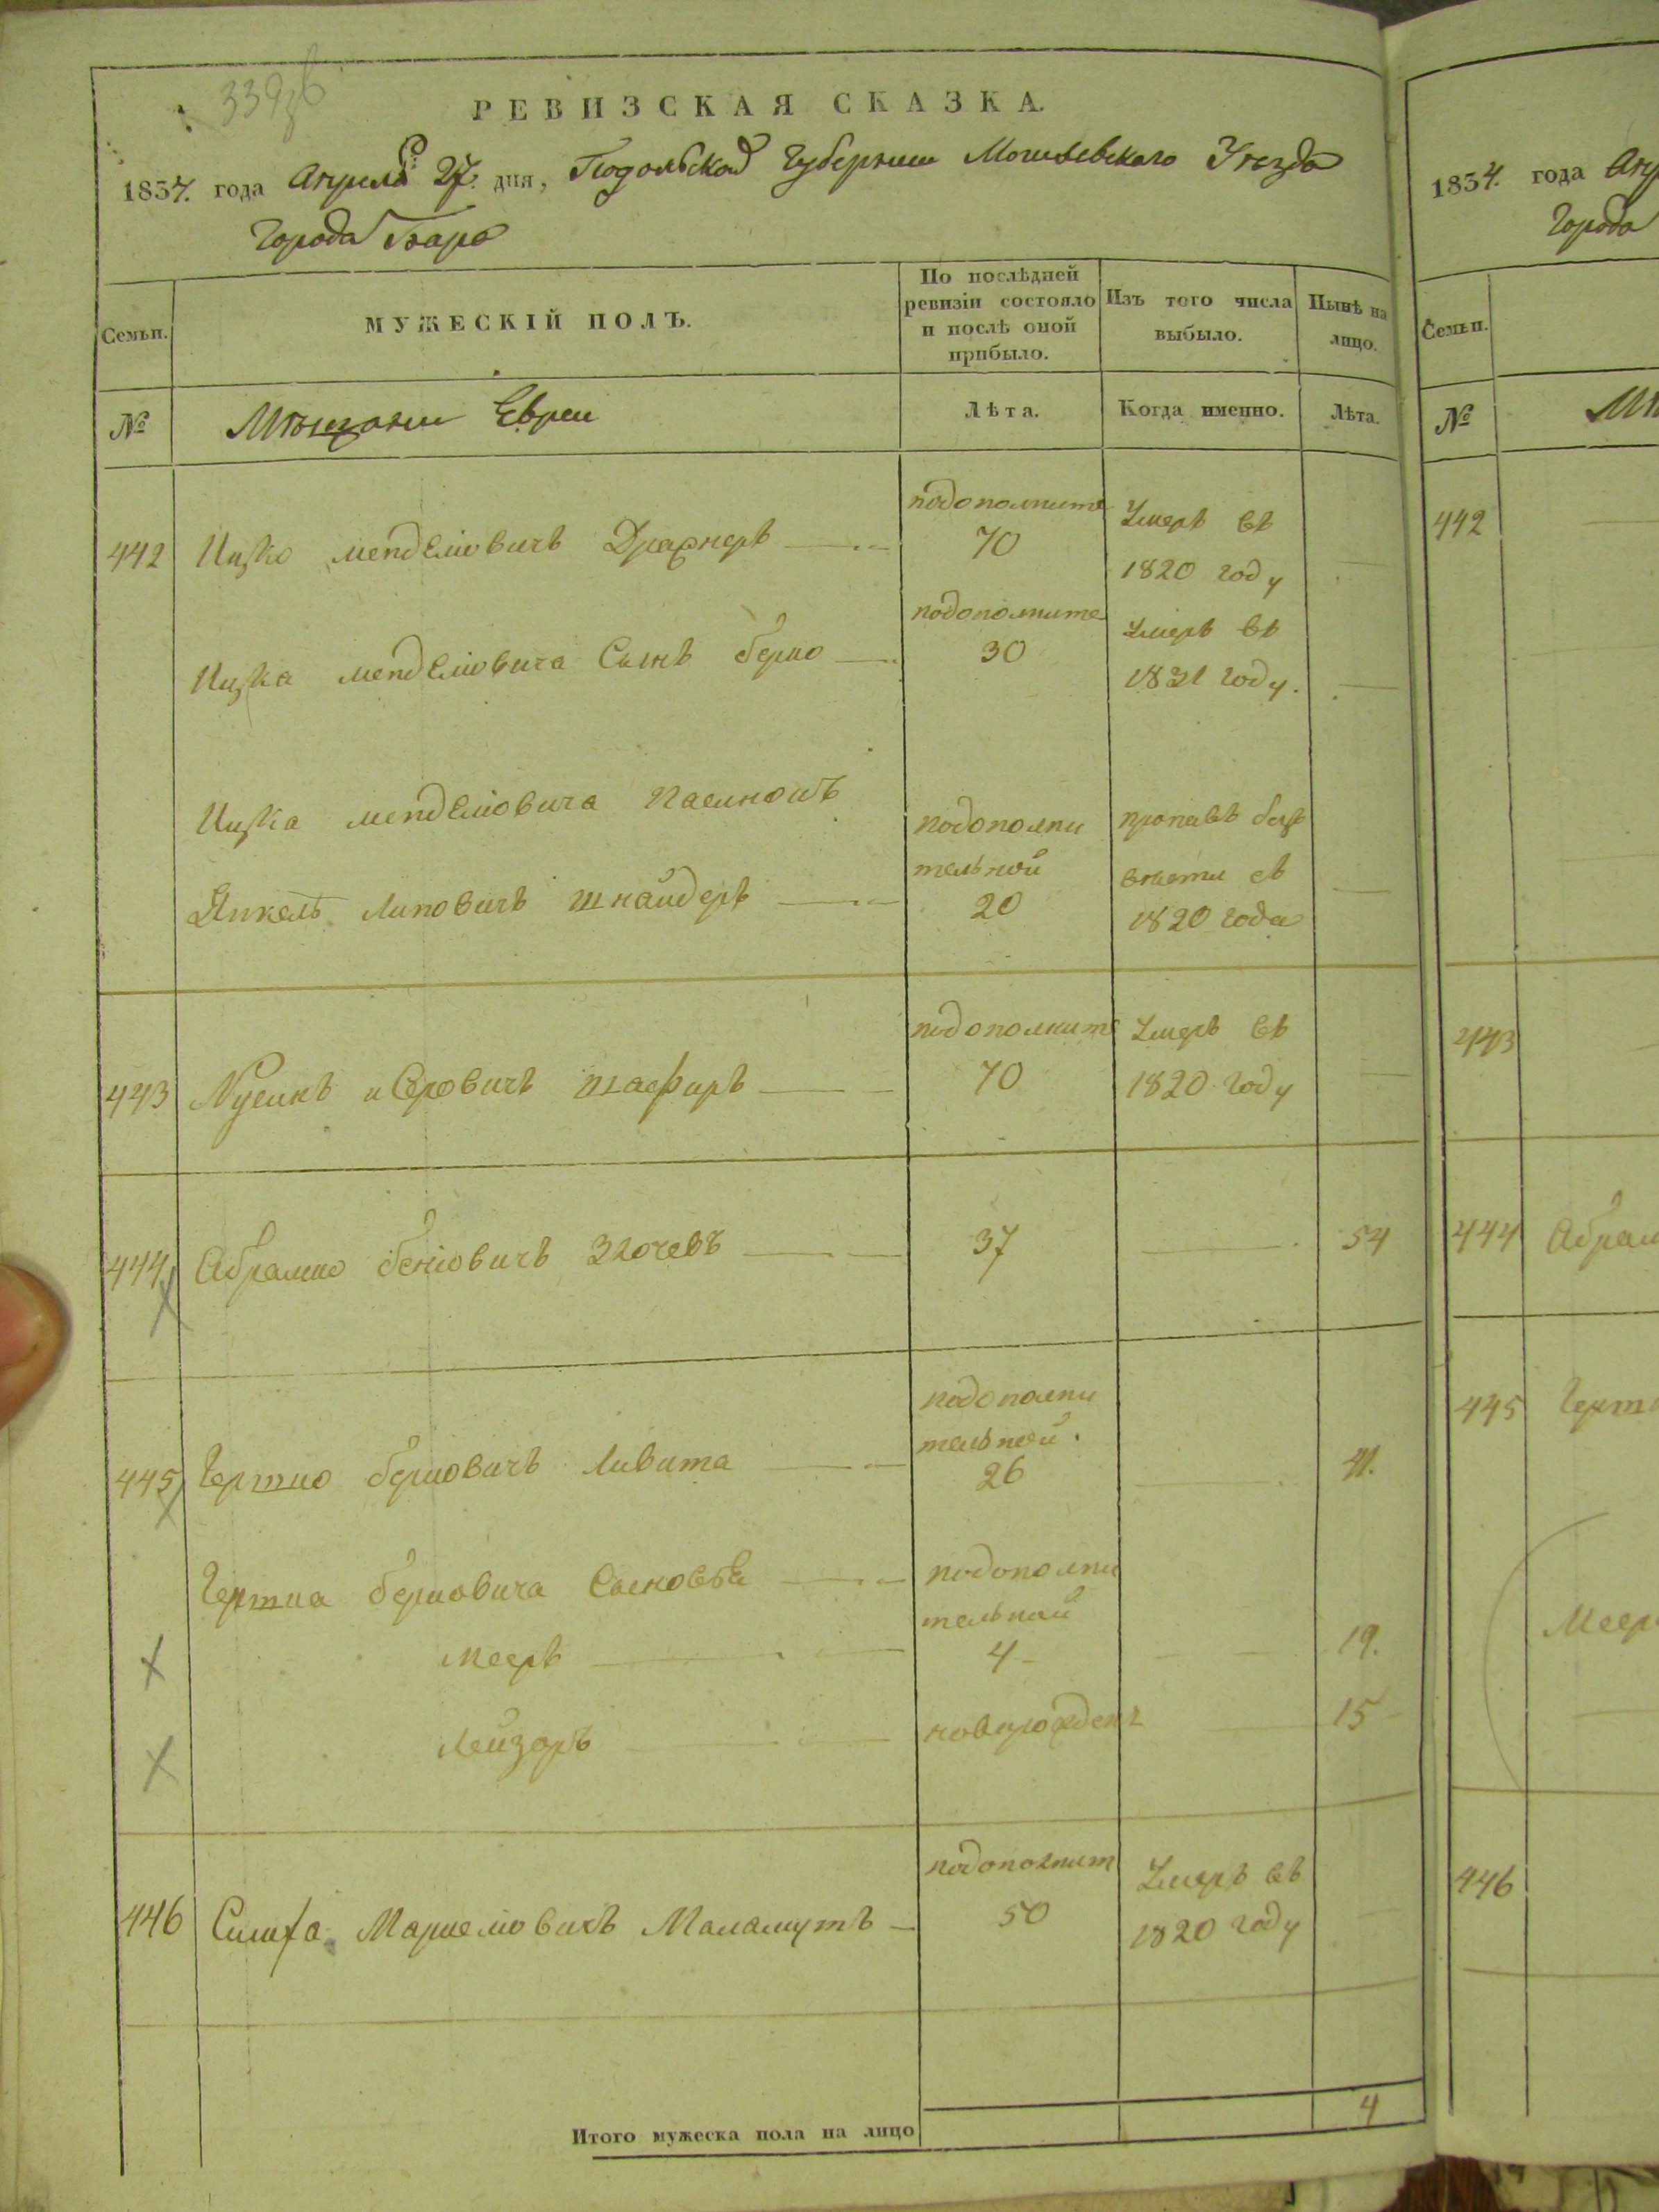 339об
РЕВИЗСКАЯ СКАЗКА.
1834. года Апреля 27. дня, Подольской Губернии Могилевского Уезда
Города Бара
Семьи.
МУЖЕСКІЙ ПОЛЪ.
По послѣдней ревизіи состояло и послѣ оной прибыло.
Изъ того числа выбыло.
Нынѣ на лицо.
№
Мѣщане Евреи
Лѣта.
Когда именно.
Лѣта.
442 Ицко Менделіовичъ 70
Умеръ въ
1820 году
Ицка Менделіовича Сынъ Берко 30
Умеръ въ
1831 году.
Ицка Менделіовича Пасынокъ
подополни
тельной
Янкель Липовичъ Шнайдеръ 20
пропавъ безъ
вѣсти съ
1820 года
443 Нусинъ Шафиръ 70
Умеръ въ
1820 году
444 Абрамко Беніовичъ Злочевъ 37 54
445 Гершко Берковичъ Ливита
подополни
тельной.
26 41.
Гершка Берковича Сыновья
подополни
тельной
Мееръ 4 19.
Лейзоръ новорожден 15
446 Симха Маламутъ
подополнит
50
Умеръ въ
1820 году
Итого мужеска пола на лицо 4
1834. года
Города
Семьи.
№
442
443
444 Абрам
445
Меер
446